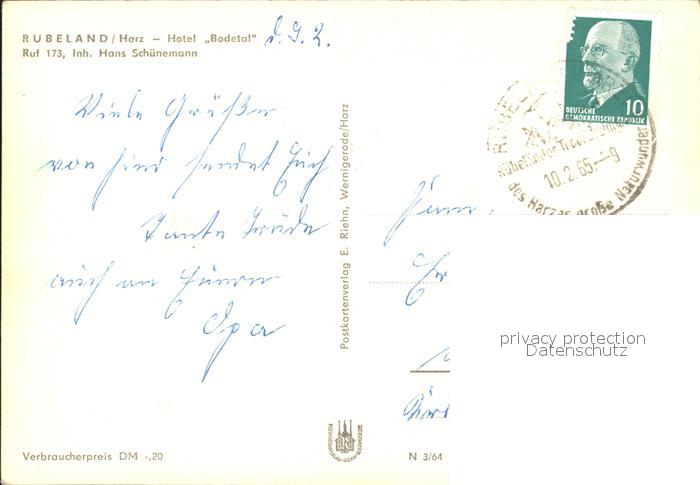 RUBELAND/Harz – Hotel „Bodetal“ d. 9. 2.
Ruf 173, Inh. Hans Schünemann
Viele Grüße
von hier sendet Euch
Tante Trude
auch an Euren
Opa
Verbraucherpreis DM -,20
Postkartenverlag E. Riehn, Wernigerode/Harz
N 3/64
10
DEUTSCHE
DEMOKRATISCHE REPUBLIK
Rübeländer
10.2.65.–9
des Harzes große Naturwunder
privacy protection
Datenschutz